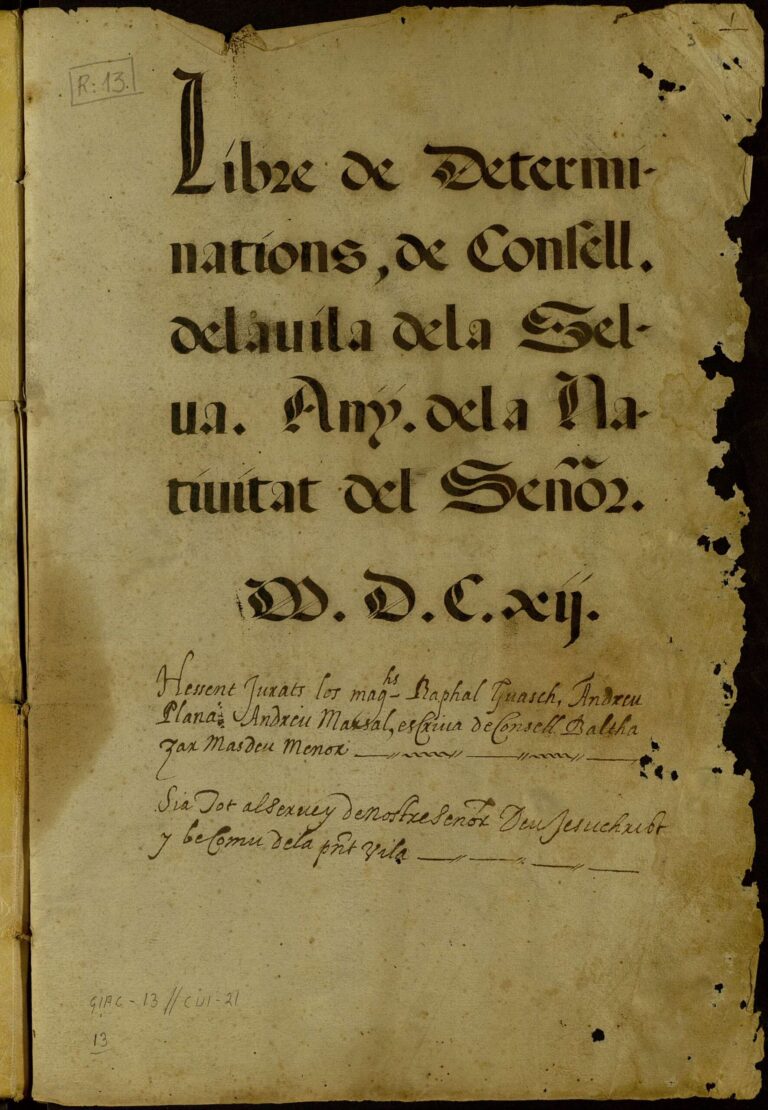 1
3
R: 13.
Libre de Determi-
nations, de Consell.
dela uila dela Sel-
ua. Anÿ. dela Na-
tiuitat del Señor.
M. D. C. xij.
Hessent Jurats los maghs Raphal Guasch, Andreu
Plana, Andreu Marsal, escriua de Consell Baltha
zar Masdeu Menor
Sia Tot al Seruey de nostre Señor Deu Jesuchrist
y be Comu dela pñt Vila
13